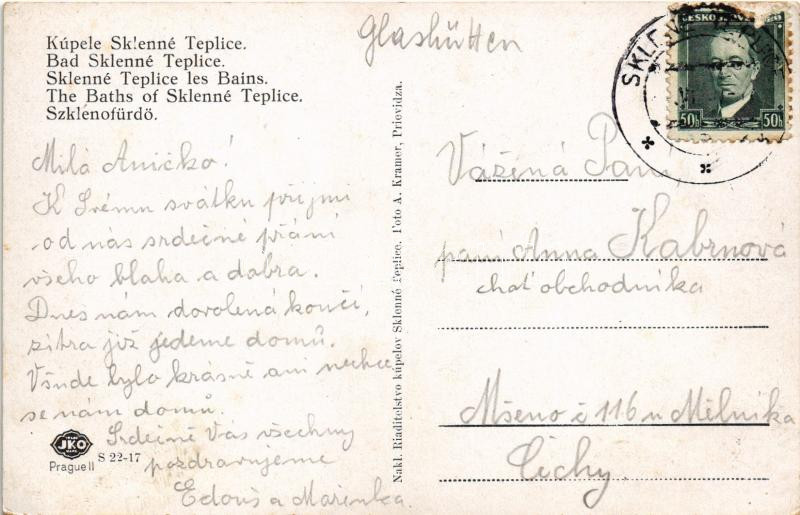 Kúpele Sklenné Teplice.
Bad Sklenné Teplice.
Sklenné Teplice les Bains.
The Baths of Sklenné Teplice.
Szklénofürdő.
Glashütten
Milá Aničko!
K Svému svátku přijmi
od nás srdečné přání
všeho blaha a dobra.
Dnes nám dovolená končí,
zítra již jedeme domů.
Všude bylo krásně ani nechce
se nám domů.
Srdečně Vás všechny
pozdravujeme
Edouš a Mařenka
JKO
Prague II
S 22-17
Nakl. Riaditelstvo kúpelov Sklenné Teplice. Foto A. Kramer, Prievidza.
50h 50h
Vážená Paní,
paní Anna Kabrnová
choť obchodníka
Mšeno č 116 u Mělníka
Čechy.